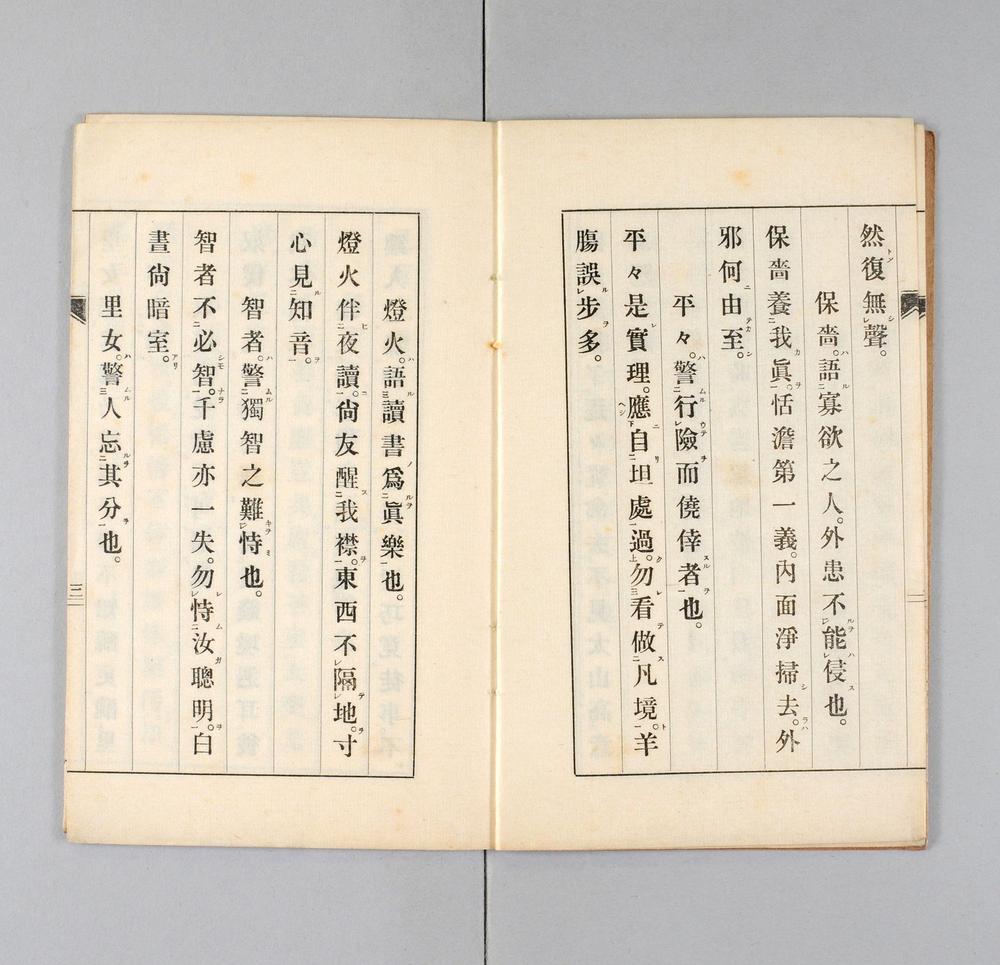 然復無聲。
保嗇。語寡欲之人。外患不能侵也。
保嗇養我眞。恬澹第一義。內面淨掃去。外
邪何由至。
平々。警行險而僥倖者也。
平々是實理。應自坦處過。勿看做凡境。羊
膓誤步多。
二
燈火。語讀書爲眞樂也。
燈火伴夜讀。尙友醒我襟。東西不隔地。寸
心見知音。
智者。警獨智之難恃也。
智者不必智。千慮亦一失。勿恃汝聰明。白
晝尙暗室。
里女。警人忘其分也。
三